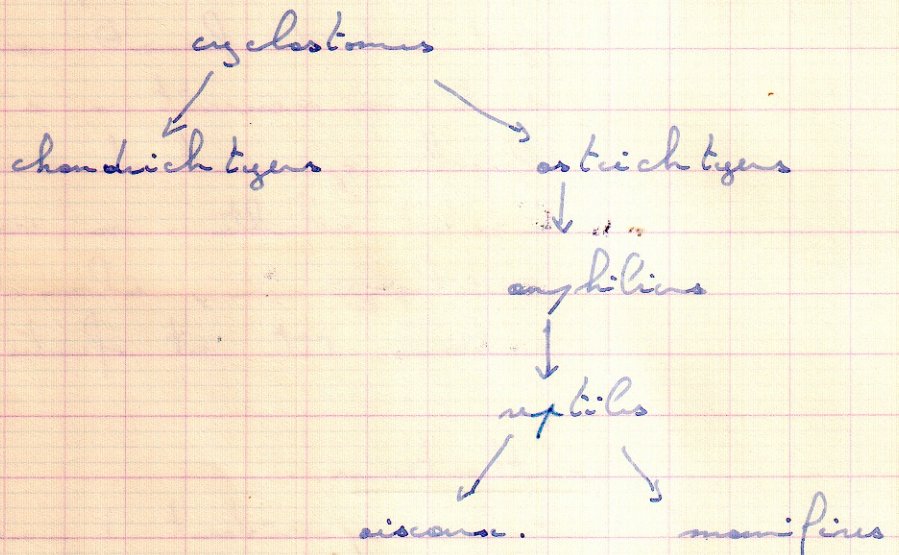 cyclostomes
chondrichtyens ostéichtyens
amphibiens
reptiles
oiseaux. mammifères